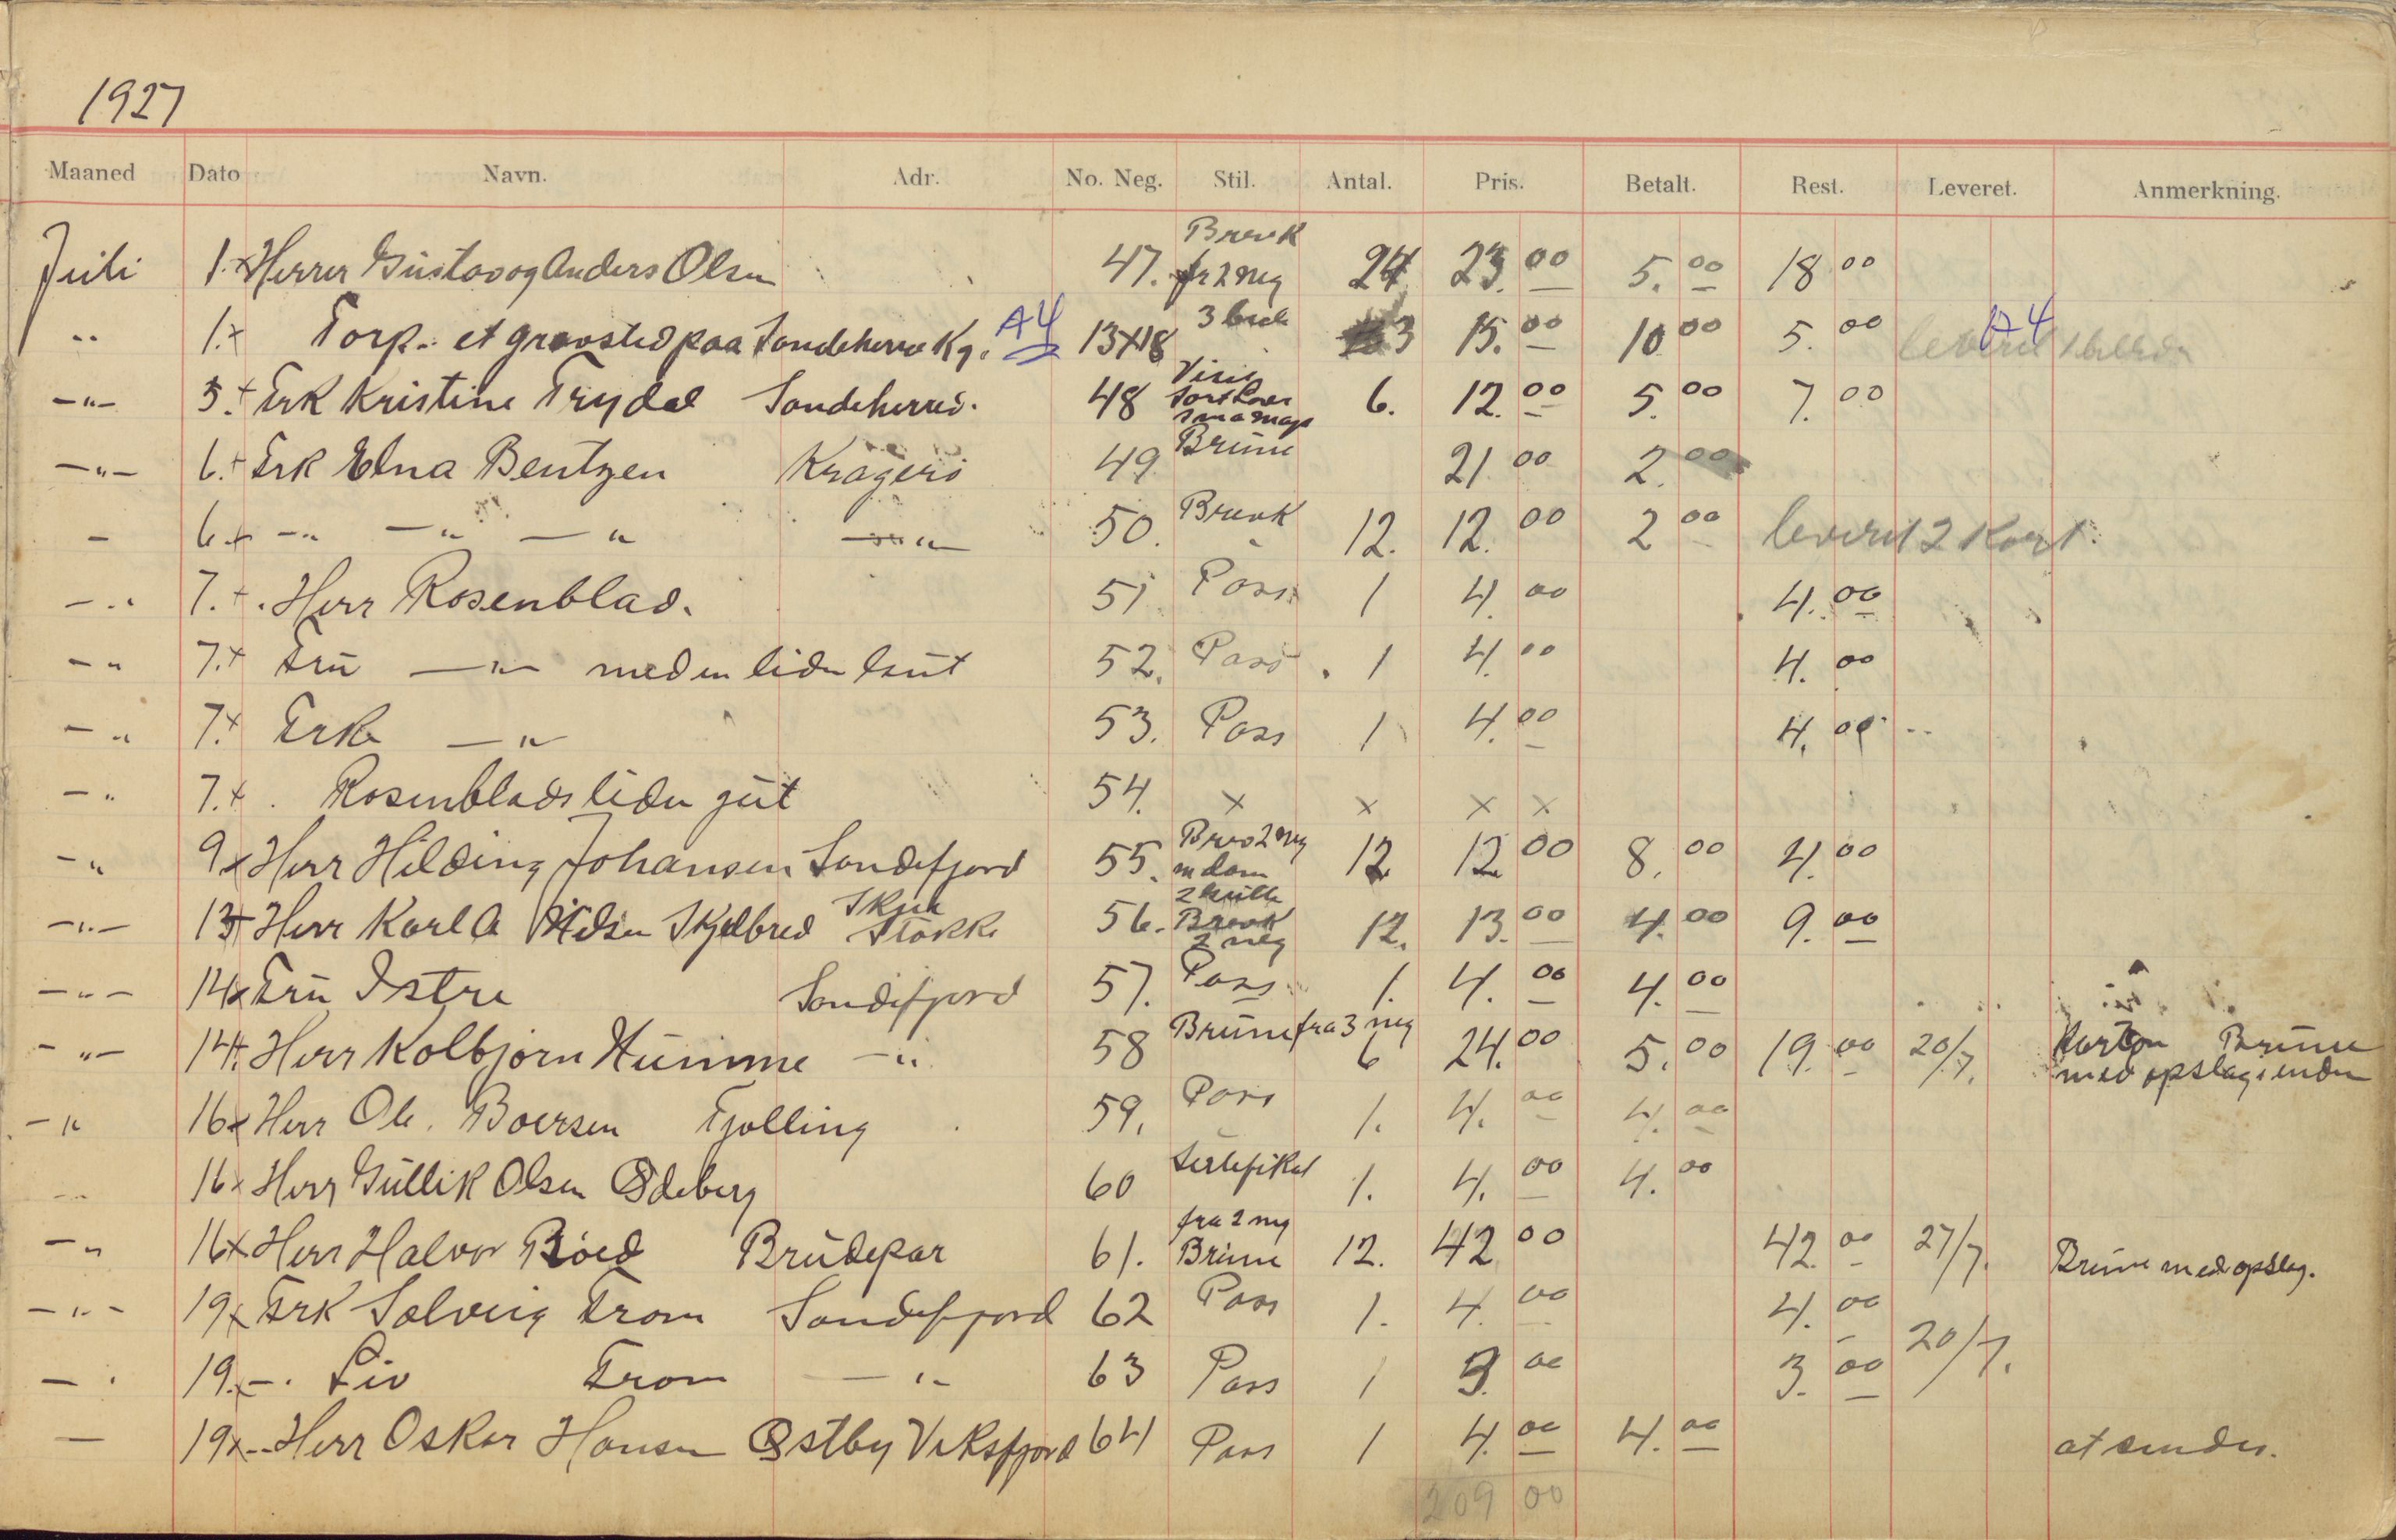 1927
Maaned Dato Navn. Adr. No. Neg. Stil. Antal. Pris. Betalt. Rest. Leveret. Anmerkning.
Juli 1.x Herrer Gustav og Anders Olsen 47. Brevk fr 2 neg 24 23.00 5.00 18 00
" 1.+ Torp. et gravsted paa Sandeherre Kg. A4 13x18 3 3 15.00 10 00 5.00 leveret A4
-"- 5.+ Frk Kristine Trydal Sandeherred. 48 Visit 6. 12.00 5.00 7.00
-"- 6.+ Frk Elna Bentzen Kragerö 49 Brüne 21 00 2.00
- 6.+ -" -" -" -"- 50. Brevk 12. 12.00 2 00 leveret 2 Kort.
-" 7.+ Herr Rosenblad. 51 Pass 1 4.00 4.00
-" 7.+ Frü -"- med en liden būt 52. Pass 1 4.00 4.00
-" 7.+ Frk -" 53. Pass 1 4.00 4.00
-" 7.+ Rosenblads liden güt 54. x x x x
-" 9x Herr Hilding Johansen Sandefjord 55. Brev 2 neg 12 12 00 8.00 4.00
-"- 13+ Herr Karl A Nilsen Skjelbred Stokke 56. 2 hülle Brevk 2 neg 12. 13.00 4.00 9.00
-"- 14x Frü Istre Sandefjord 57. Pass 1. 4.00 4.00
-"- 14+. Herr Kolbjörn Hümme -" 58 Brüne fra 3 neg 6 24.00 5.00 19.00 20/7. Karton Brüne
med opslag i enden
-" 16x Herr Ole. Boersen Tjölling 59. Pass 1. 4.00 4.00
-" 16x Herr Güllik Olsen Ödeberg 60 Sertefikat 1. 4.00 4.00
-" 16x Herr Halvor Böed Brüdepar 61. fra 2 neg Brüne 12. 42 00 42.00 27/7. Brüne med opslag.
-"- 19x Frk Solveig Trom Sandefjord 62 Pass 1. 4.00 4.00
-" 19.x-. Liv Trom -" 63 Pass 1 3.00 3.00 20/7.
- 19x-- Herr Oskar Hansen Östby Viksfjord 64 Pass 1 4.00 4.00 at sendes.
209 00